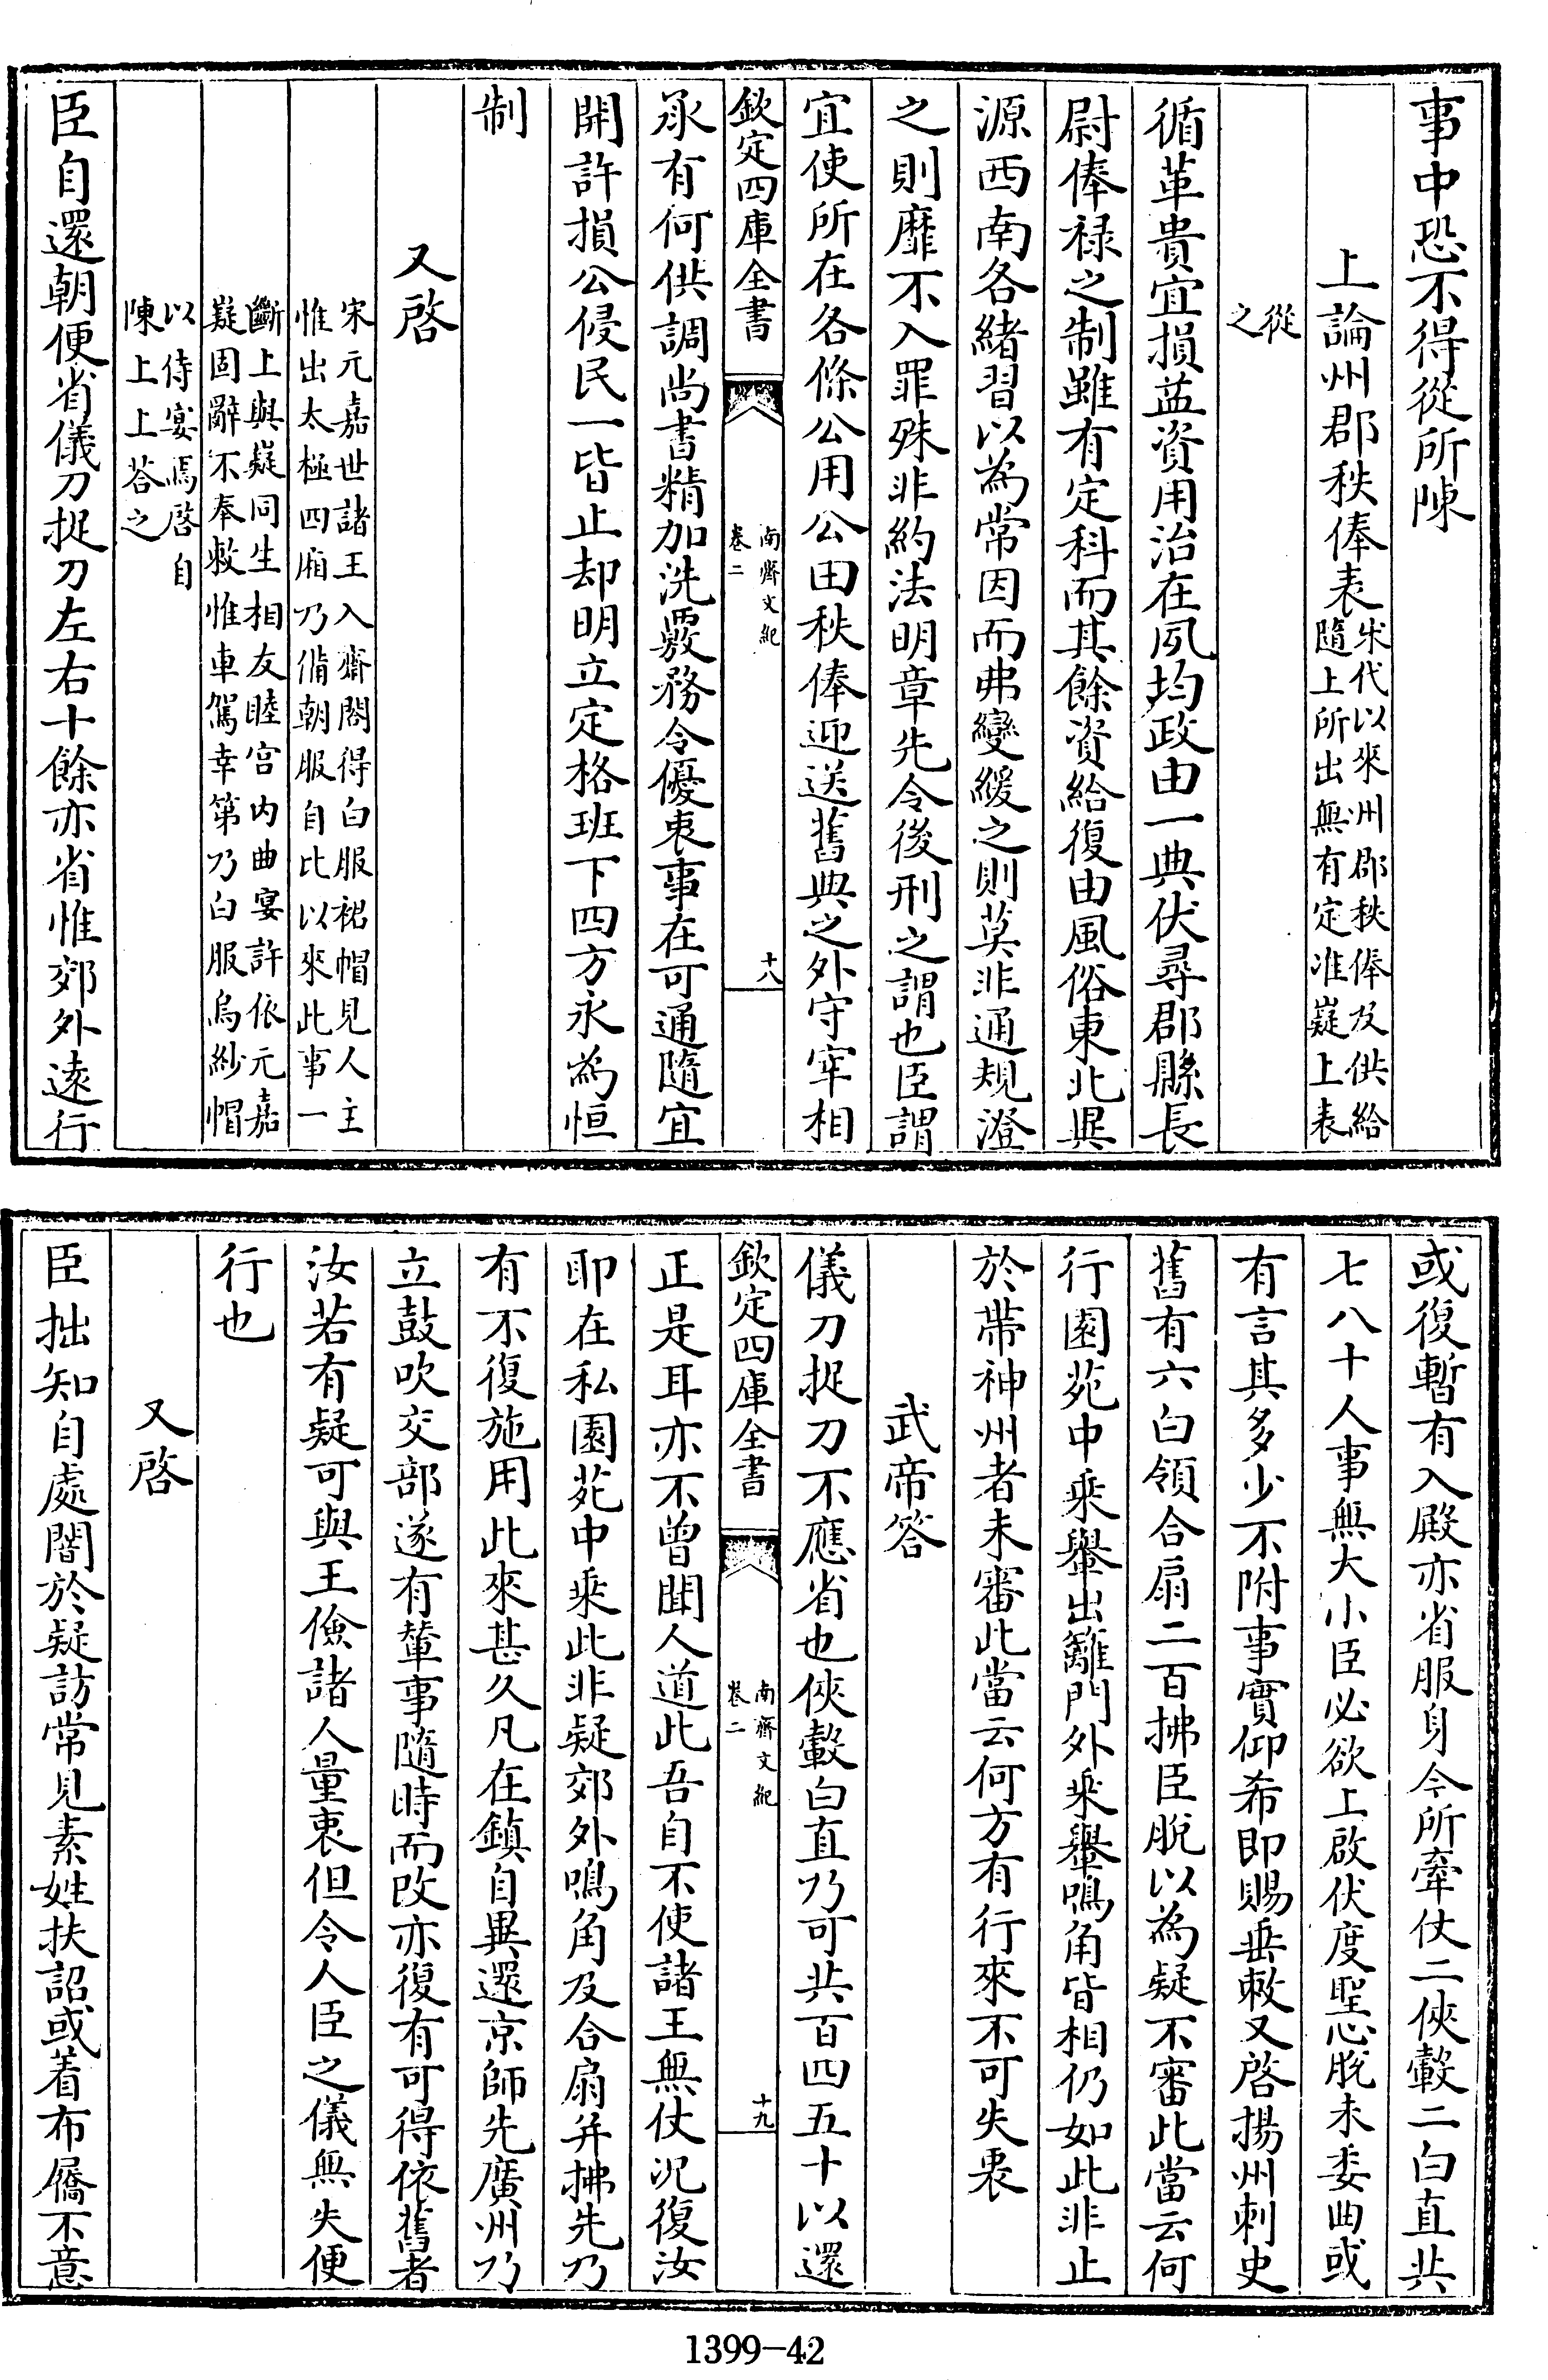 事中恐不得從所陳
上論州郡秩俸表
宋代以來州郡秩俸及供給
隨上所出無有定准嶷上表
從
之
循革貴宜損益資用治在夙均政由一典伏尋郡縣長
尉俸祿之制雖有定科而其餘資給復由風俗東北異
源西南各緒習以為常因而弗變緩之則莫非通規澄
之則靡不入罪殊非約法明章先令後刑之謂也臣謂
宜使所在各條公用公田秩俸迎送舊典之外守宰相
欽定四庫全書
南齊文紀
卷二
十八
承有何供調尚書精加洗覈務令優衷事在可通隨宜
開許損公侵民一皆止却明立定格班下四方永為恒
制
又啓
宋元嘉世諸王入齋閤得白服裙帽見人主
惟出太極四廂乃備朝服自比以來此事一
斷上與嶷同生相友睦宮内曲宴許依元嘉
嶷固辭不奉敕惟車駕幸第乃白服烏紗帽
以侍宴焉啓自
陳上上荅之
臣自還朝便省儀刀捉刀左右十餘亦省惟郊外遠行
或復暫有入殿亦省服身今所牽仗二俠轂二白直共
七八十人事無大小臣必欲上啟伏度聖心脫未委曲或
有言其多少不附事實仰希即賜垂敕又啓揚州刺史
舊有六白領合扇二百拂臣脫以為疑不審此當云何
行園苑中乘轝出籬門外乘轝鳴角皆相仍如此非止
於帶神州者未審此當云何方有行來不可失衷
武帝答
儀刀捉刀不應省也俠轂白直乃可共百四五十以還
欽定四庫全書
南齊文紀
卷二
十九
正是耳亦不曾聞人道此吾自不使諸王無仗况復汝
耶在私園苑中乘此非疑郊外鳴角及合扇并拂先乃
有不復施用此來甚久凡在鎮自異還京師先廣州乃
立鼓吹交部遂有輦事隨時而改亦復有可得依舊者
汝若有疑可與王儉諸人量衷但令人臣之儀無失便
行也
又啓
臣拙知自處闇於疑訪常見素姓扶詔或着布屩不意
1399-42